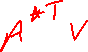 A*T V